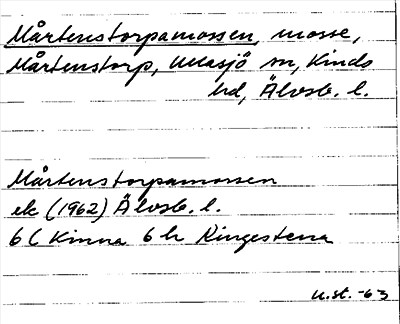 Mårtenstorpamossen, mosse,
Mårtenstorp, sn, Kinds
hd, Älvsb. l.
Mårtenstorpamossen
ek (1962) Älvsb. l.
6 C Kinna 6 h Ringestena
u.st. -63